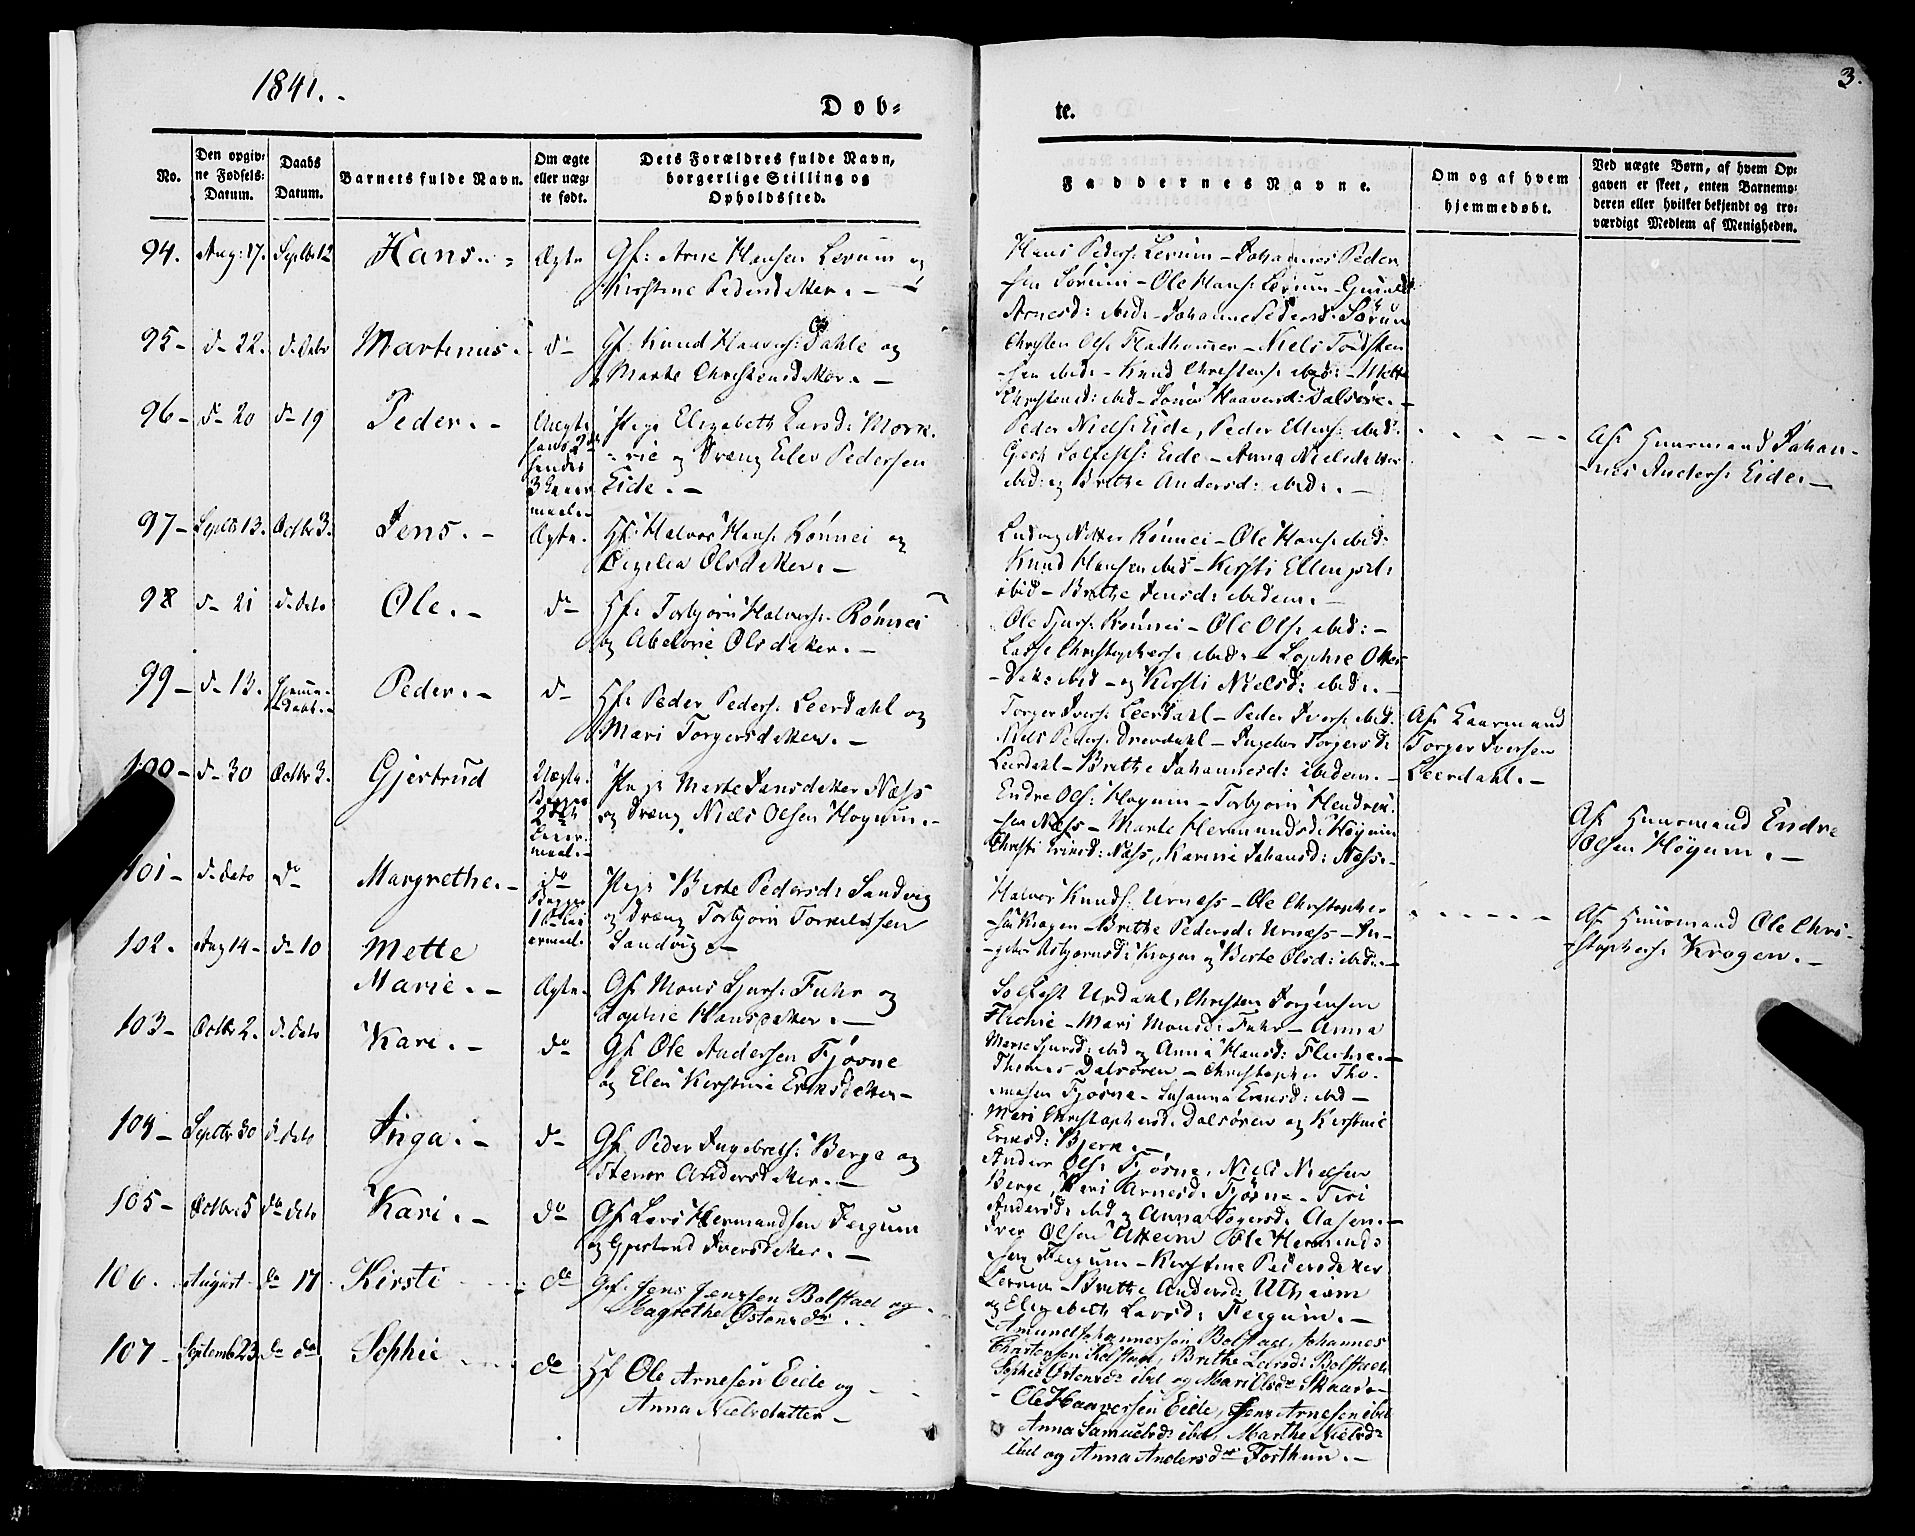 1841.
Døb-
te.
3.
No.
Den opgiv-
ne Fødsels-
Datum.
Daabs
Datum.
Barnets fulde Navn.
Om ægte
eller uæg-
te født.
Dets Forældres fulde Navn,
borgerlige Stilling og
Opholdssted.
Faddernes Navne.
Om og af hvem
hjemmedøbt.
Ved uægte Børn, af hvem Op-
gaven er skeet, enten Barnemo-
deren eller hvilket bekjendt og tro-
værdigt Medlem af Menigheden.
94. Aug: 17. Septbr 12 Hans. Ægte Gf: Arne Hansen Lerum og
Kirstine Pedersdatter. –
Hans Peders: Lerum – Johannes Peder
sen Sørum – Ole Hans: Lerum –
Arnesd: ibid – Johanne Pedersd: Sørum
95 – d– 22. d. Dato Martinus. d– Gf: Knud Haavers: Dahle og
Marthe Christensdatter. –
Christen Ols: Fladhammer – Niels
sen ibid – Knud Christens: ibid – Mette
Christensd: ibid – Haaversd: Dalsøre. –
96 – d– 20 d– 19 Peder. – Uægte
hans 2det
hendes
3 Leier
maal. –
Pige Elizabeth Larsd: Mork
rie og Dreng Elev Pedersen
Eide. –
Peder Niels: Eide, Peder Ellens: ibid.
Solfests: Eide – Anna Nielsdatter
ibid: og Brithe Andersd: ibid. –
Af Huusmand Johan-
nes Anders: Eide. –
97 – Septbr 13. Octbr 3. Jens. – Ægte. Hf: Halvor Hans: Rønnei og
Cezelia Olsdatter. –
Ludvig Rønnei – Ole Hans: ibid:
Knud Hansen ibid – Kirsti Ellingsd:
ibid – Brithe Jensd: ibidem. –
98 d– 21 d. Dato Ole. – d– Hf: Torbjørn Halvors: Rønnei
og Abelone Olsdatter. –
Ole Sjurs: Rønnei – Ole Ols: ibid: –
Lasse Christophers: ibid: – Sophie Otters
Datt: ibid – og Kirsti Nielsd: ibid. –
99 – d– 13. Hjemme-
døbt. –
Peder. – d– Hf: Peder Peders: Leerdahl og
Mari Torgersdatter. –
Torger Ivers: Leerdahl – Peder Ivers: ibid.
Niels Peders: Drevdahl – Ingebor Torgersd:
Leerdahl – Brithe Johannesd: ibidem. –
Af Huusmand
Torger Iversen
Leerdahl. –
100 – d– 30 Octbr 3. Gjertrud Uægte.
Begges
2det
Leier
maal. –
Pige Marthe Jansdatter Næss
og Dreng Niels Olsen Høgum. –
Endre Ols: Høgum – Torbjørn Hendrik
sen Næss – Marte Hermundsd: Høgum
Christi Iversd: Næss, Karine Johansd: Næss. –
Af Huusmand Endre
Olsen Høgum. –
101 – d. Dato do Margrethe. – do
Begges
1ste Lei
ermaal.
Pige Berte Pedersd: Sandvig
og Dreng Torbjørn Torkelssen
Sandvig. –
Halvor Knuds: Urnæss – Ole Christopher
sen Krogen – Brithe Pedersd: Urnæss – In-
gebor Asbjørnsd: Krogen og Berte Olsd: ibid. –
Af Huusmand Ole Chri-
stophers: Krogen. –
102. Aug 14 – d– 10 Mette
Marie. – Ægte. Gf: Mons Sjurs: Fuhr og
Sophie Hansdatter. –
Solfest Urdahl, Christen Jørgensen
Flechie – Mari Monsd: Fuhr – Anna
Marie Sjursd: ibid og Anna Hansd: Flechie. –
103 – Octbr 2. d. Dato Kari. – do Gf: Ole Andersen Fjøsne
og Elen Kirstine Eriksdatter –
Thomas Dalsøren – Christopher Tho-
massen Fjøsne – Susanna Eriksd: ibid –
Mari Christophersd: Dalsøren og Kirstine
Eriksd: Bjerk. –
104 – Septbr 30 d. Dato Inga. – d– Gf: Peder Ingebrets: Berge og
Andersdatter. –
Anders Ols: Fjøsne, Niels Nielsen
Berge, Kari Arnesd: Fjøsne –
Andersd: ibid og Anna Aasen. –
105 – Octbr 5 do Dato Kari. – do Gf: Lars Hermandsen Fergum
og Gjertrud Iversdatter. –
Iver Olsen Uttheim Ole Hermunds
sen Fergum – Kirstine Pedersdatter
Lerum – Brithe Andersd: Uthiem
og Elizabeth Larsd: Fergum. –
106. August do 17 Kirsti do Gf. Jens Jenssen Bolstad og
Magrethe Østensdr.
Amund Johannessen Bolstad, Johannes
Christensen Kolstad, Brithe Larsd: Bolstad
Sophie Østensdr ibid og Mari Olsdr Skaar –
107 – Septemb 23 do do Sophie do Hf Ole Arnesen Eide og
Anna Nielsdatter –
Ole Haaversen Eide, Jens Arnesen ibid
Anna Samuelsd: ibid, Marthe Nielsdr
ibid og Anna Andersdr Forthun. –